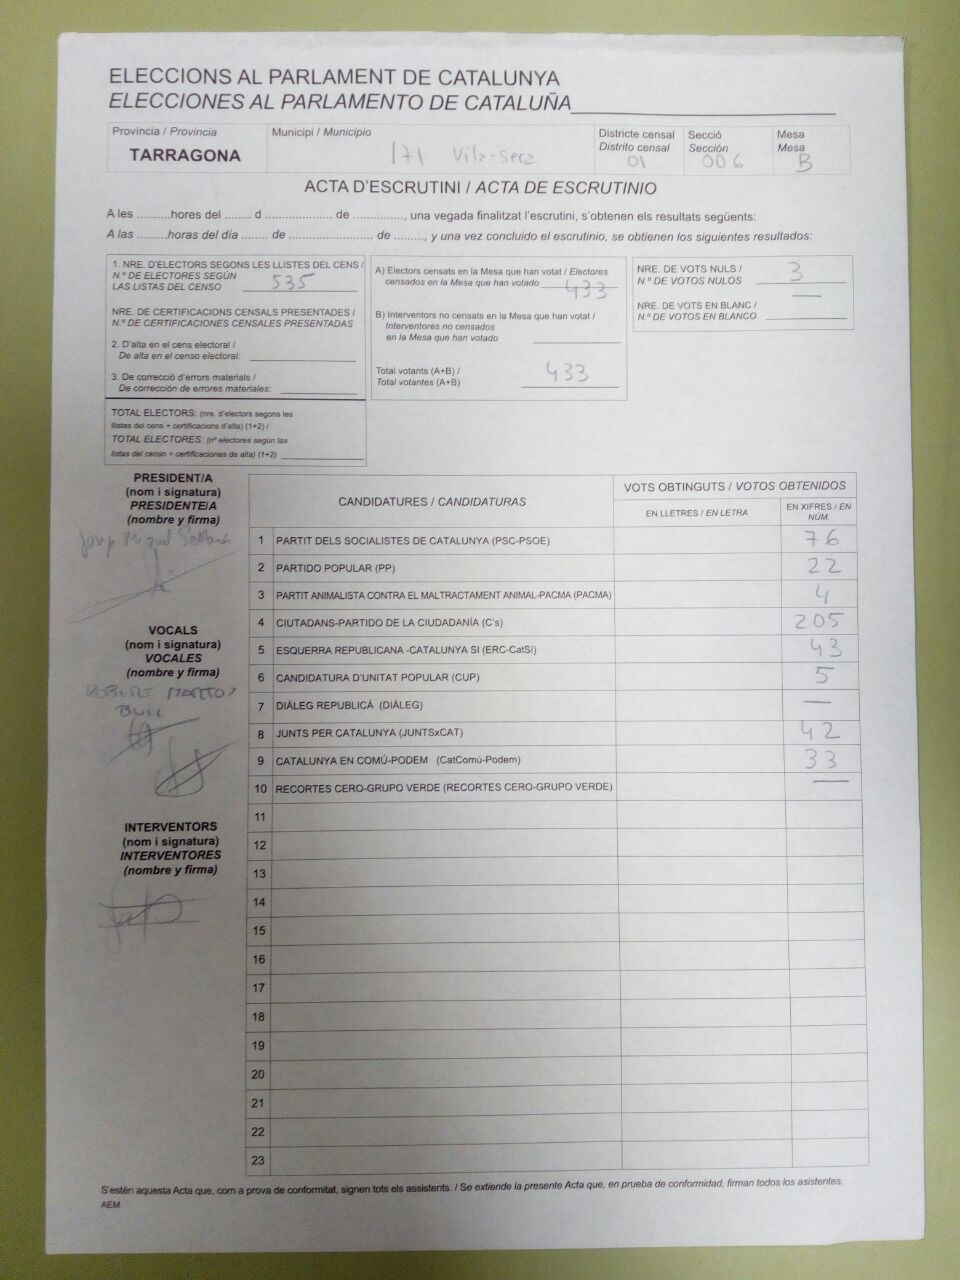 ELECCIONS AL PARLAMENT DE CATALUNYA
ELECCIONES AL PARLAMENTO DE CATALUÑA
Província / Provincia
TARRAGONA
Municipi / Municipio
171 Vila-seca
Districte censal
Distrito censal
01
Secció
Sección
006
Mesa
Mesa
B
ACTA D'ESCRUTINI / ACTA DE ESCRUTINIO
A les ..........hores del ........ d .................... de ..............., una vegada finalitzat l'escrutini, s'obtenen els resultats següents:
A las .........horas del día ........ de ......................... de ........., y una vez concluido el escrutinio, se obtienen los siguientes resultados:
1. NRE. D'ELECTORS SEGONS LES LLISTES DEL CENS /
N.º DE ELECTORES SEGÚN
LAS LISTAS DEL CENSO 535
NRE. DE CERTIFICACIONS CENSALS PRESENTADES /
N.º DE CERTIFICACIONES CENSALES PRESENTADAS
2. D'alta en el cens electoral /
De alta en el censo electoral:
3. De correcció d'errors materials /
De corrección de errores materiales:
TOTAL ELECTORS: (nre. d'electors segons les
llistes del cens + certificacions d'alta) (1+2) /
TOTAL ELECTORES: (nº electores según las
listas del censo + certificaciones de alta) (1+2)
A) Electors censats en la Mesa que han votat / Electores
censados en la Mesa que han votado 433
B) Interventors no censats en la Mesa que han votat /
Interventores no censados
en la Mesa que han votado
Total votants (A+B) /
Total votantes (A+B) 433
NRE. DE VOTS NULS /
N.º DE VOTOS NULOS 3
NRE. DE VOTS EN BLANC /
N.º DE VOTOS EN BLANCO —
PRESIDENT/A
(nom i signatura)
PRESIDENTE/A
(nombre y firma)
Josep Miquel
VOCALS
(nom i signatura)
VOCALES
(nombre y firma)
ROBERT
INTERVENTORS
(nom i signatura)
INTERVENTORES
(nombre y firma)
CANDIDATURES / CANDIDATURAS
VOTS OBTINGUTS / VOTOS OBTENIDOS
EN LLETRES / EN LETRA
EN XIFRES / EN NÚM.
1 PARTIT DELS SOCIALISTES DE CATALUNYA (PSC-PSOE) 76
2 PARTIDO POPULAR (PP) 22
3 PARTIT ANIMALISTA CONTRA EL MALTRACTAMENT ANIMAL-PACMA (PACMA) 4
4 CIUTADANS-PARTIDO DE LA CIUDADANÍA (C's) 205
5 ESQUERRA REPUBLICANA -CATALUNYA SÍ (ERC-CatSí) 43
6 CANDIDATURA D'UNITAT POPULAR (CUP) 5
7 DIÀLEG REPUBLICÀ (DIÀLEG) —
8 JUNTS PER CATALUNYA (JUNTSxCAT) 42
9 CATALUNYA EN COMÚ-PODEM (CatComú-Podem) 33
10 RECORTES CERO-GRUPO VERDE (RECORTES CERO-GRUPO VERDE) —
11
12
13
14
15
16
17
18
19
20
21
22
23
S'estén aquesta Acta que, com a prova de conformitat, signen tots els assistents. / Se extiende la presente Acta que, en prueba de conformidad, firman todos los asistentes.
AEM